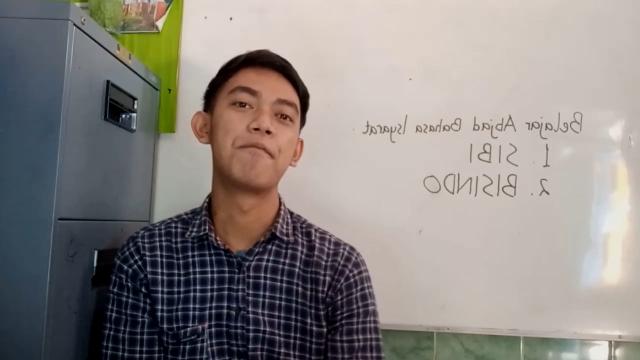 Belajar Abjad Bahasa Isyarat.
1. SIBI
2. BISINDO